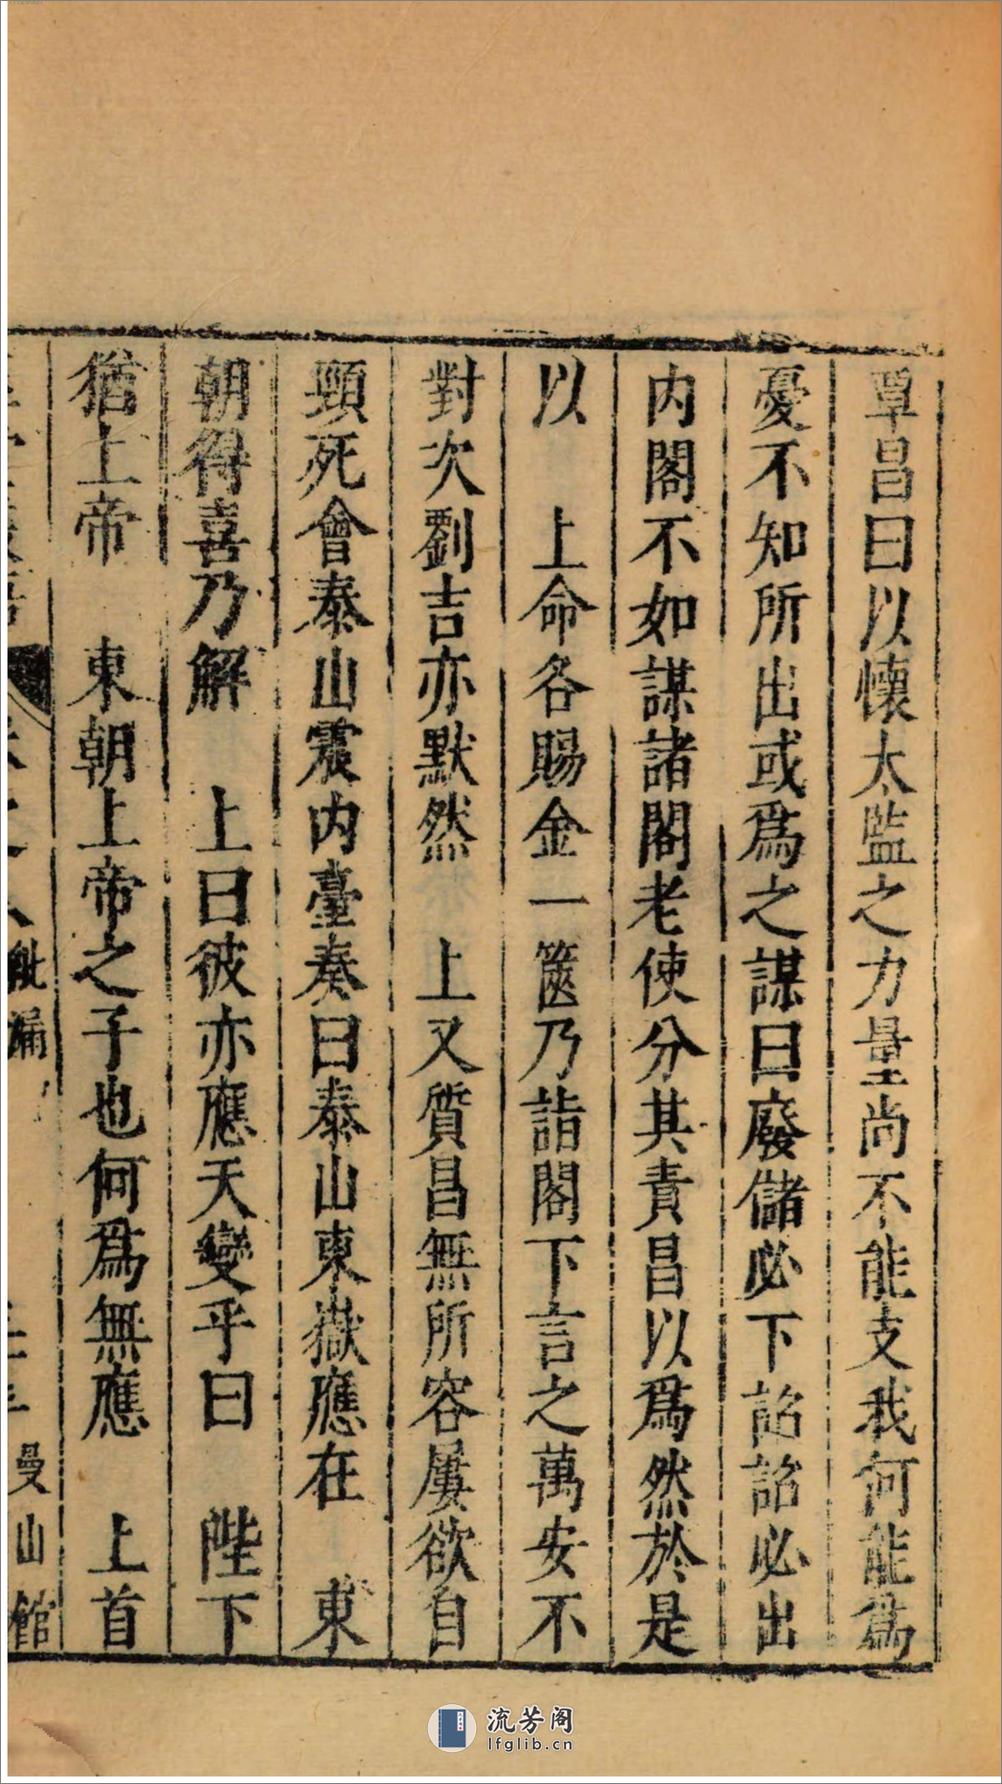 覃昌曰以懷太監之力量尚不能支我何能爲
憂不知所出或爲之謀曰廢儲必下詔詔必出
内閣不如謀諸閣老使分其責昌以爲然於是
以　上命各賜金一篋乃詣閣下言之萬安不
對次劉吉亦默然　上又質昌無所容屢欲自
頸死會泰山震内臺奏曰泰山東嶽應在　東
朝得喜乃解　上曰彼亦應天變乎曰　陛下
猶上帝　東朝上帝之子也何爲無應　上首
紕漏
曼山館
流芳阁
lfglib.cn